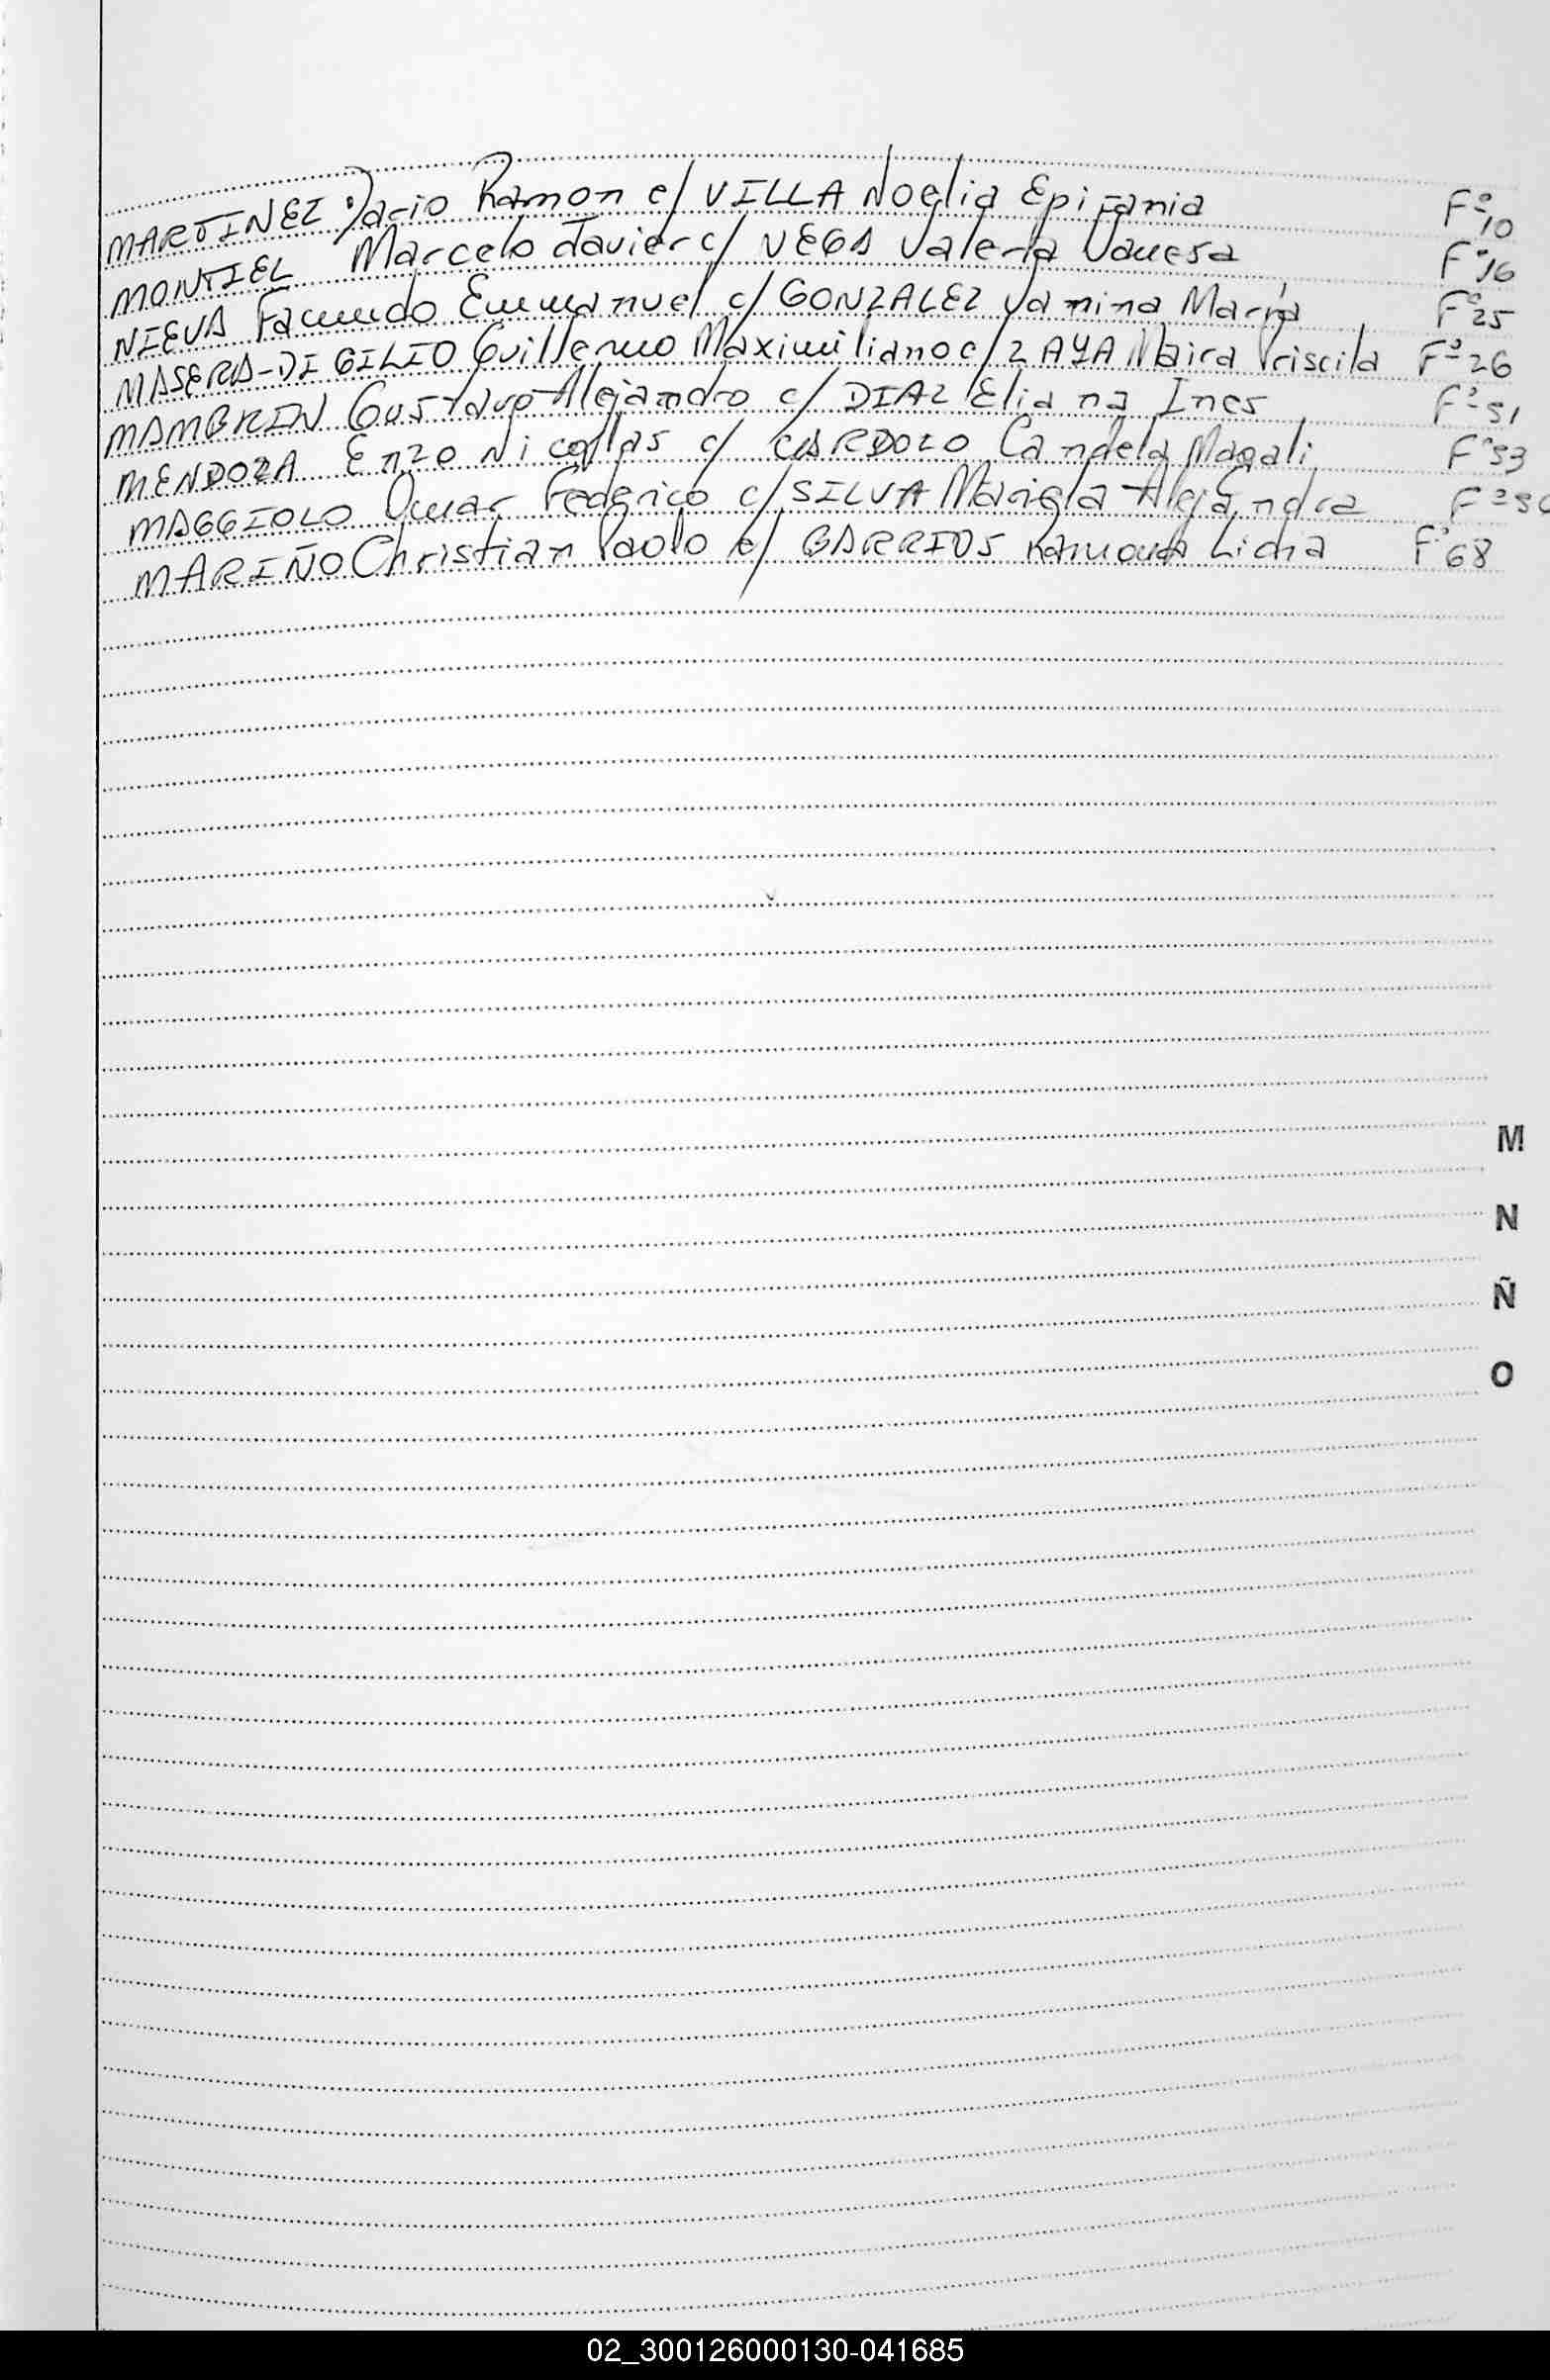 MARTINEZ Dario Ramon c/ VILLA Noelia Epifania F° 10
MONTIEL Marcelo Javier c/ VEGA Valeria Vanesa F° 16
NIEVA Facundo Emmanuel c/ GONZALEZ Yanina Maria F° 25
MASERA-DI GILIO Guillermo Maximiliano c/ ZAYA Maira Priscila F° 26
MAMBRIN Gustavo Alejandro c/ DIAZ Eliana Ines F° 51
MENDOZA Enzo Nicolas c/ CARDOZO Candela Magali F° 53
MAGGIOLO Omar Federico c/ SILVA Mariela Alejandra F°
MARIÑO Christian Paolo c/ BARRIOS Ramona Lidia F° 68
M
N
Ñ
O
02_300126000130-041685